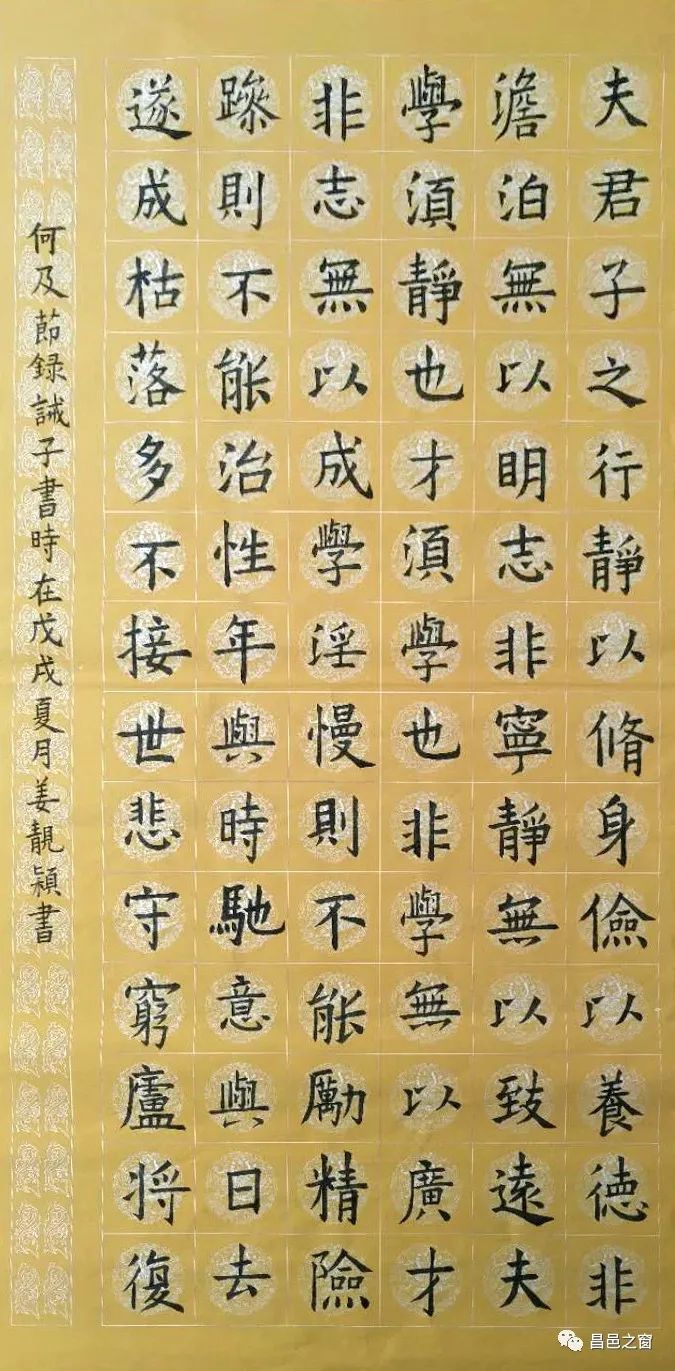 夫君子之行靜以脩身儉以養德非
澹泊無以明志非寧靜無以致遠夫
學須靜也才須學也非學無以廣才
非志無以成學淫慢則不能勵精險
躁則不能治性年與時馳意與日去
遂成枯落多不接世悲守窮廬将復
何及節録誡子書時在戊戌夏月姜靚穎書
昌邑之窗